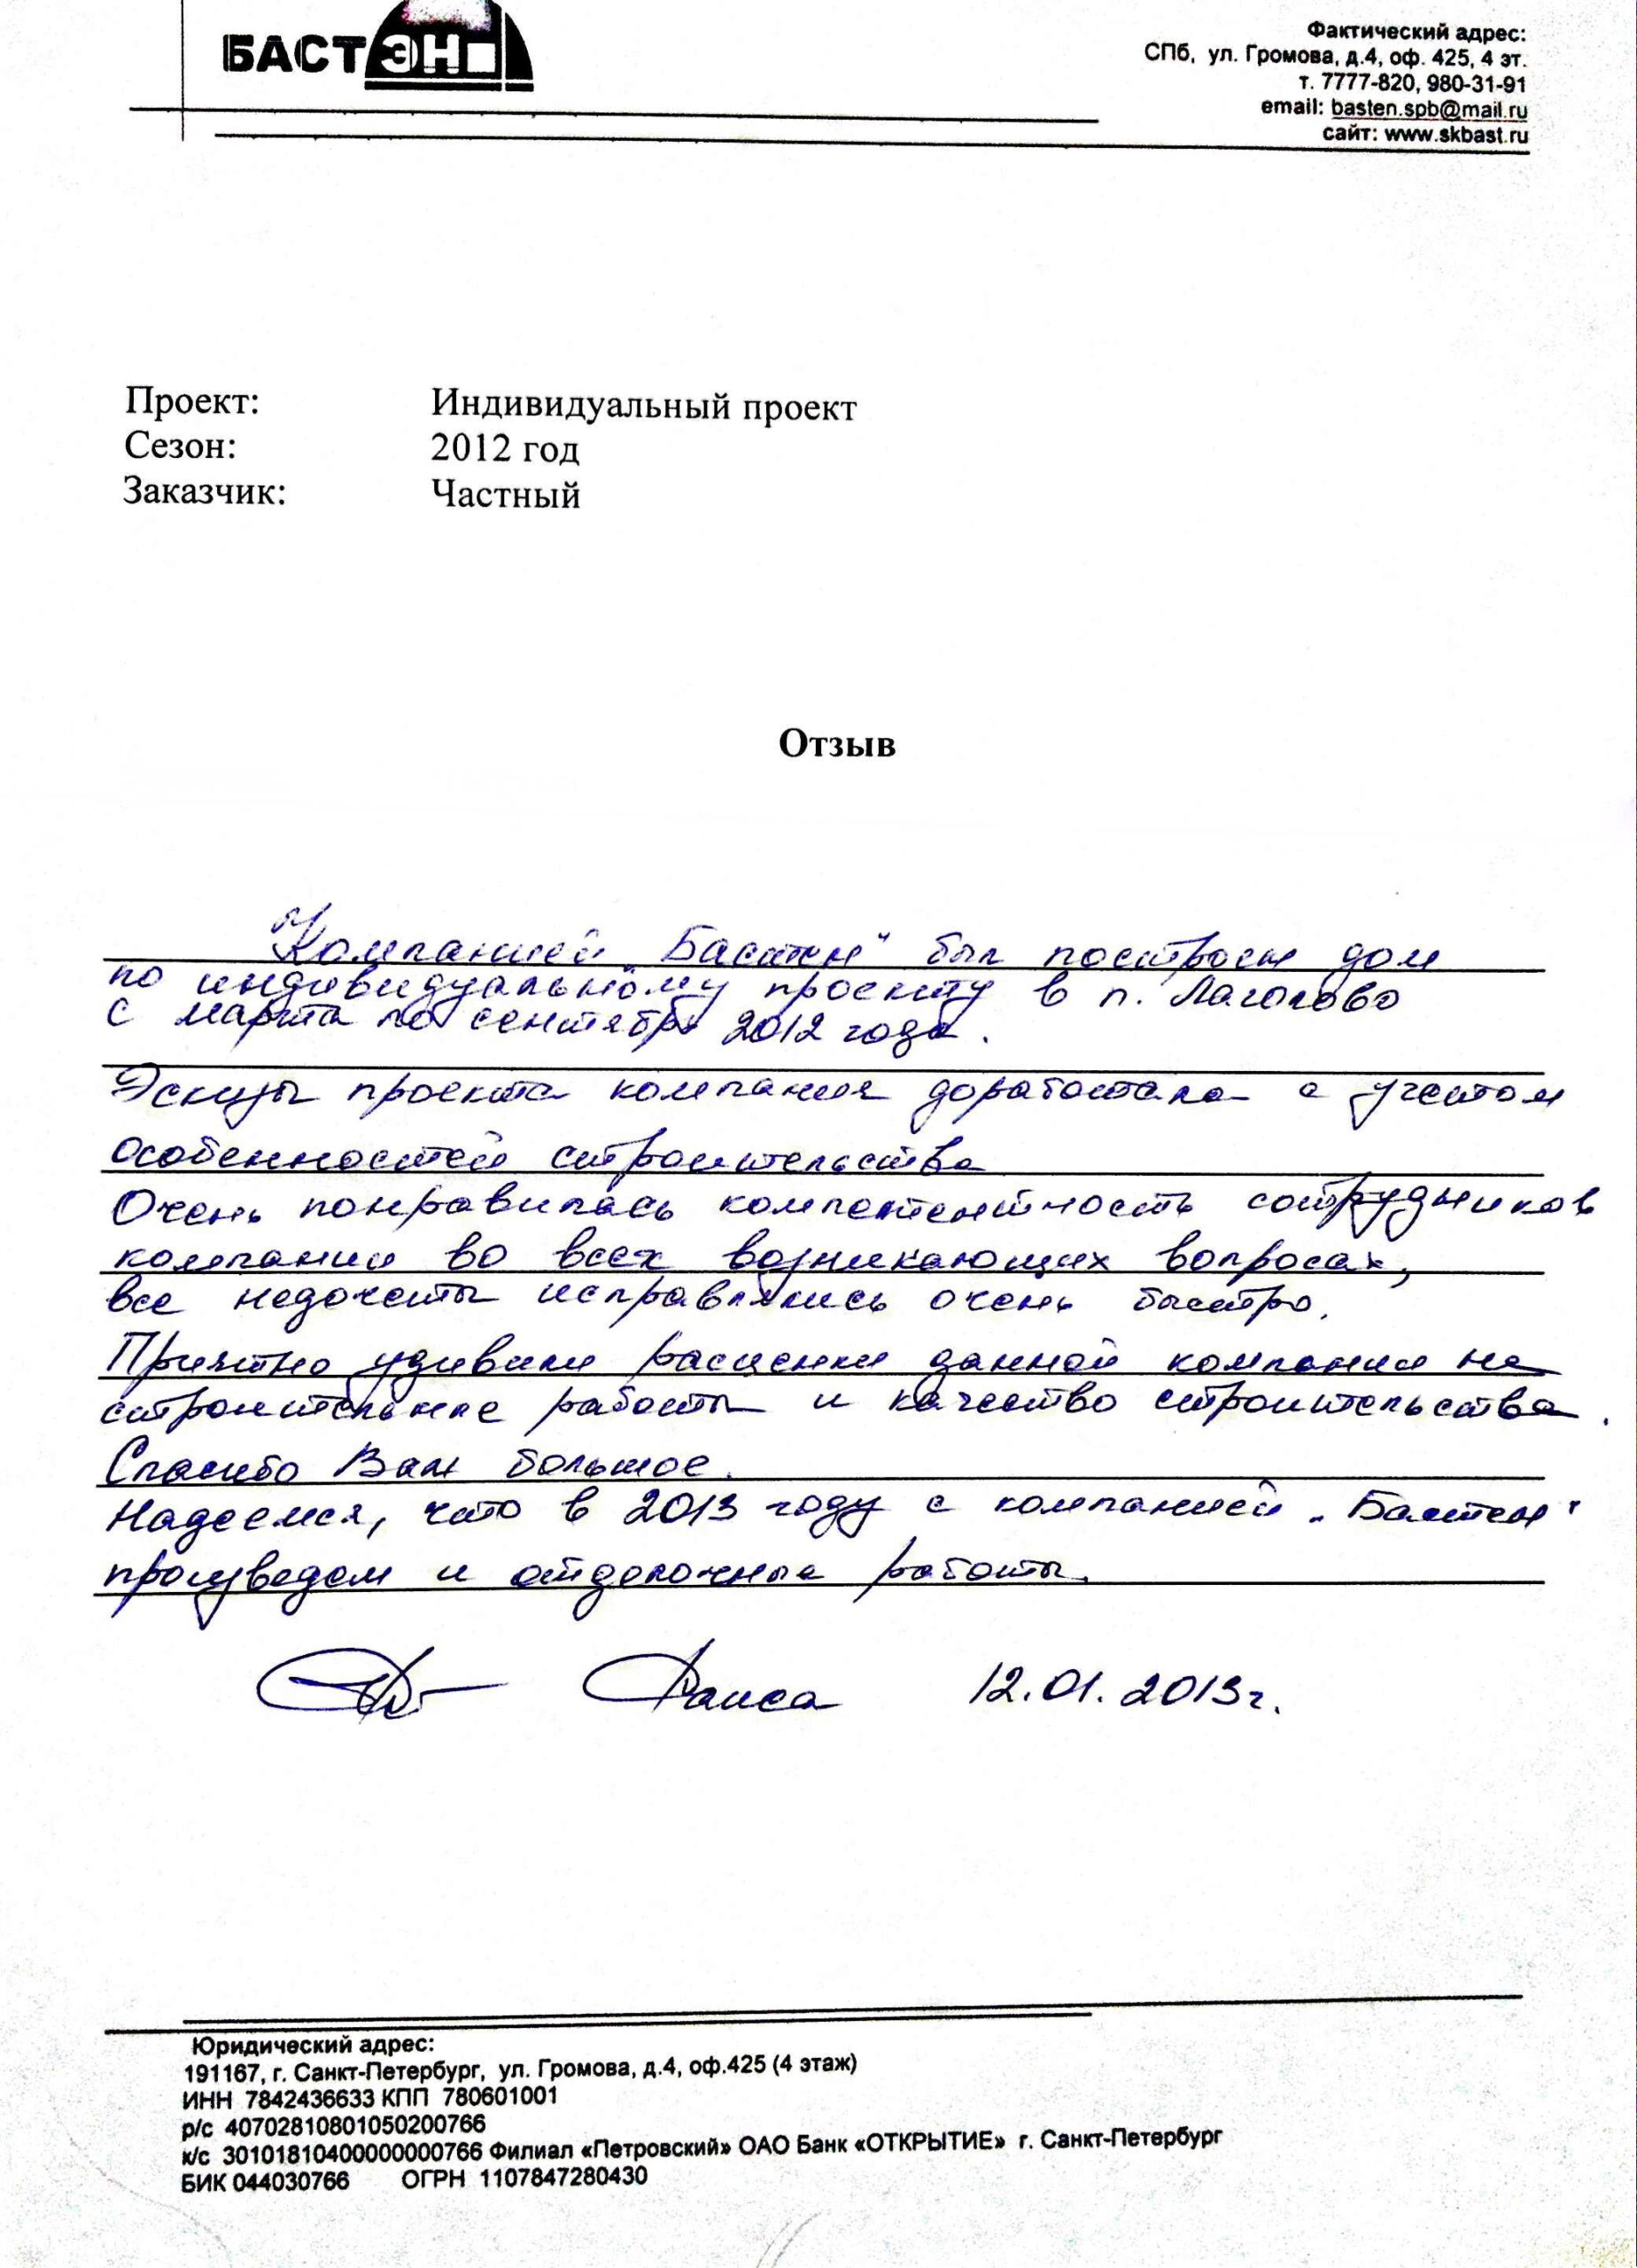 БАСТЭН
Фактический адрес:
СПб, ул. Громова, д.4, оф. 425, 4 эт.
т. 7777-820, 980-31-91
email: basten.spb@mail.ru
сайт: www.skbast.ru
Проект: Индивидуальный проект
Сезон: 2012 год
Заказчик: Частный
Отзыв
Компанией „Бастэн" был построен дом
по индивидуальному проекту в п. Лаголово
с марта по сентябрь 2012 года.
Эскизы проекта компания доработала с учетом
особенностей строительства
Очень понравилась компетентность сотрудников
компании во всех возникающих вопросах,
все недочеты исправлялись очень быстро.
Приятно удивили расценки данной компании на
строительные работы и качество строительства.
Спасибо Вам большое.
Надеемся, что в 2013 году с компанией „Бастэн"
произведем и отделочные работы.
Раиса 12.01.2013г.
Юридический адрес:
191167, г. Санкт-Петербург, ул. Громова, д.4, оф.425 (4 этаж)
ИНН 7842436633 КПП 780601001
р/с 40702810801050200766
к/с 30101810400000000766 Филиал «Петровский» ОАО Банк «ОТКРЫТИЕ» г. Санкт-Петербург
БИК 044030766 ОГРН 1107847280430